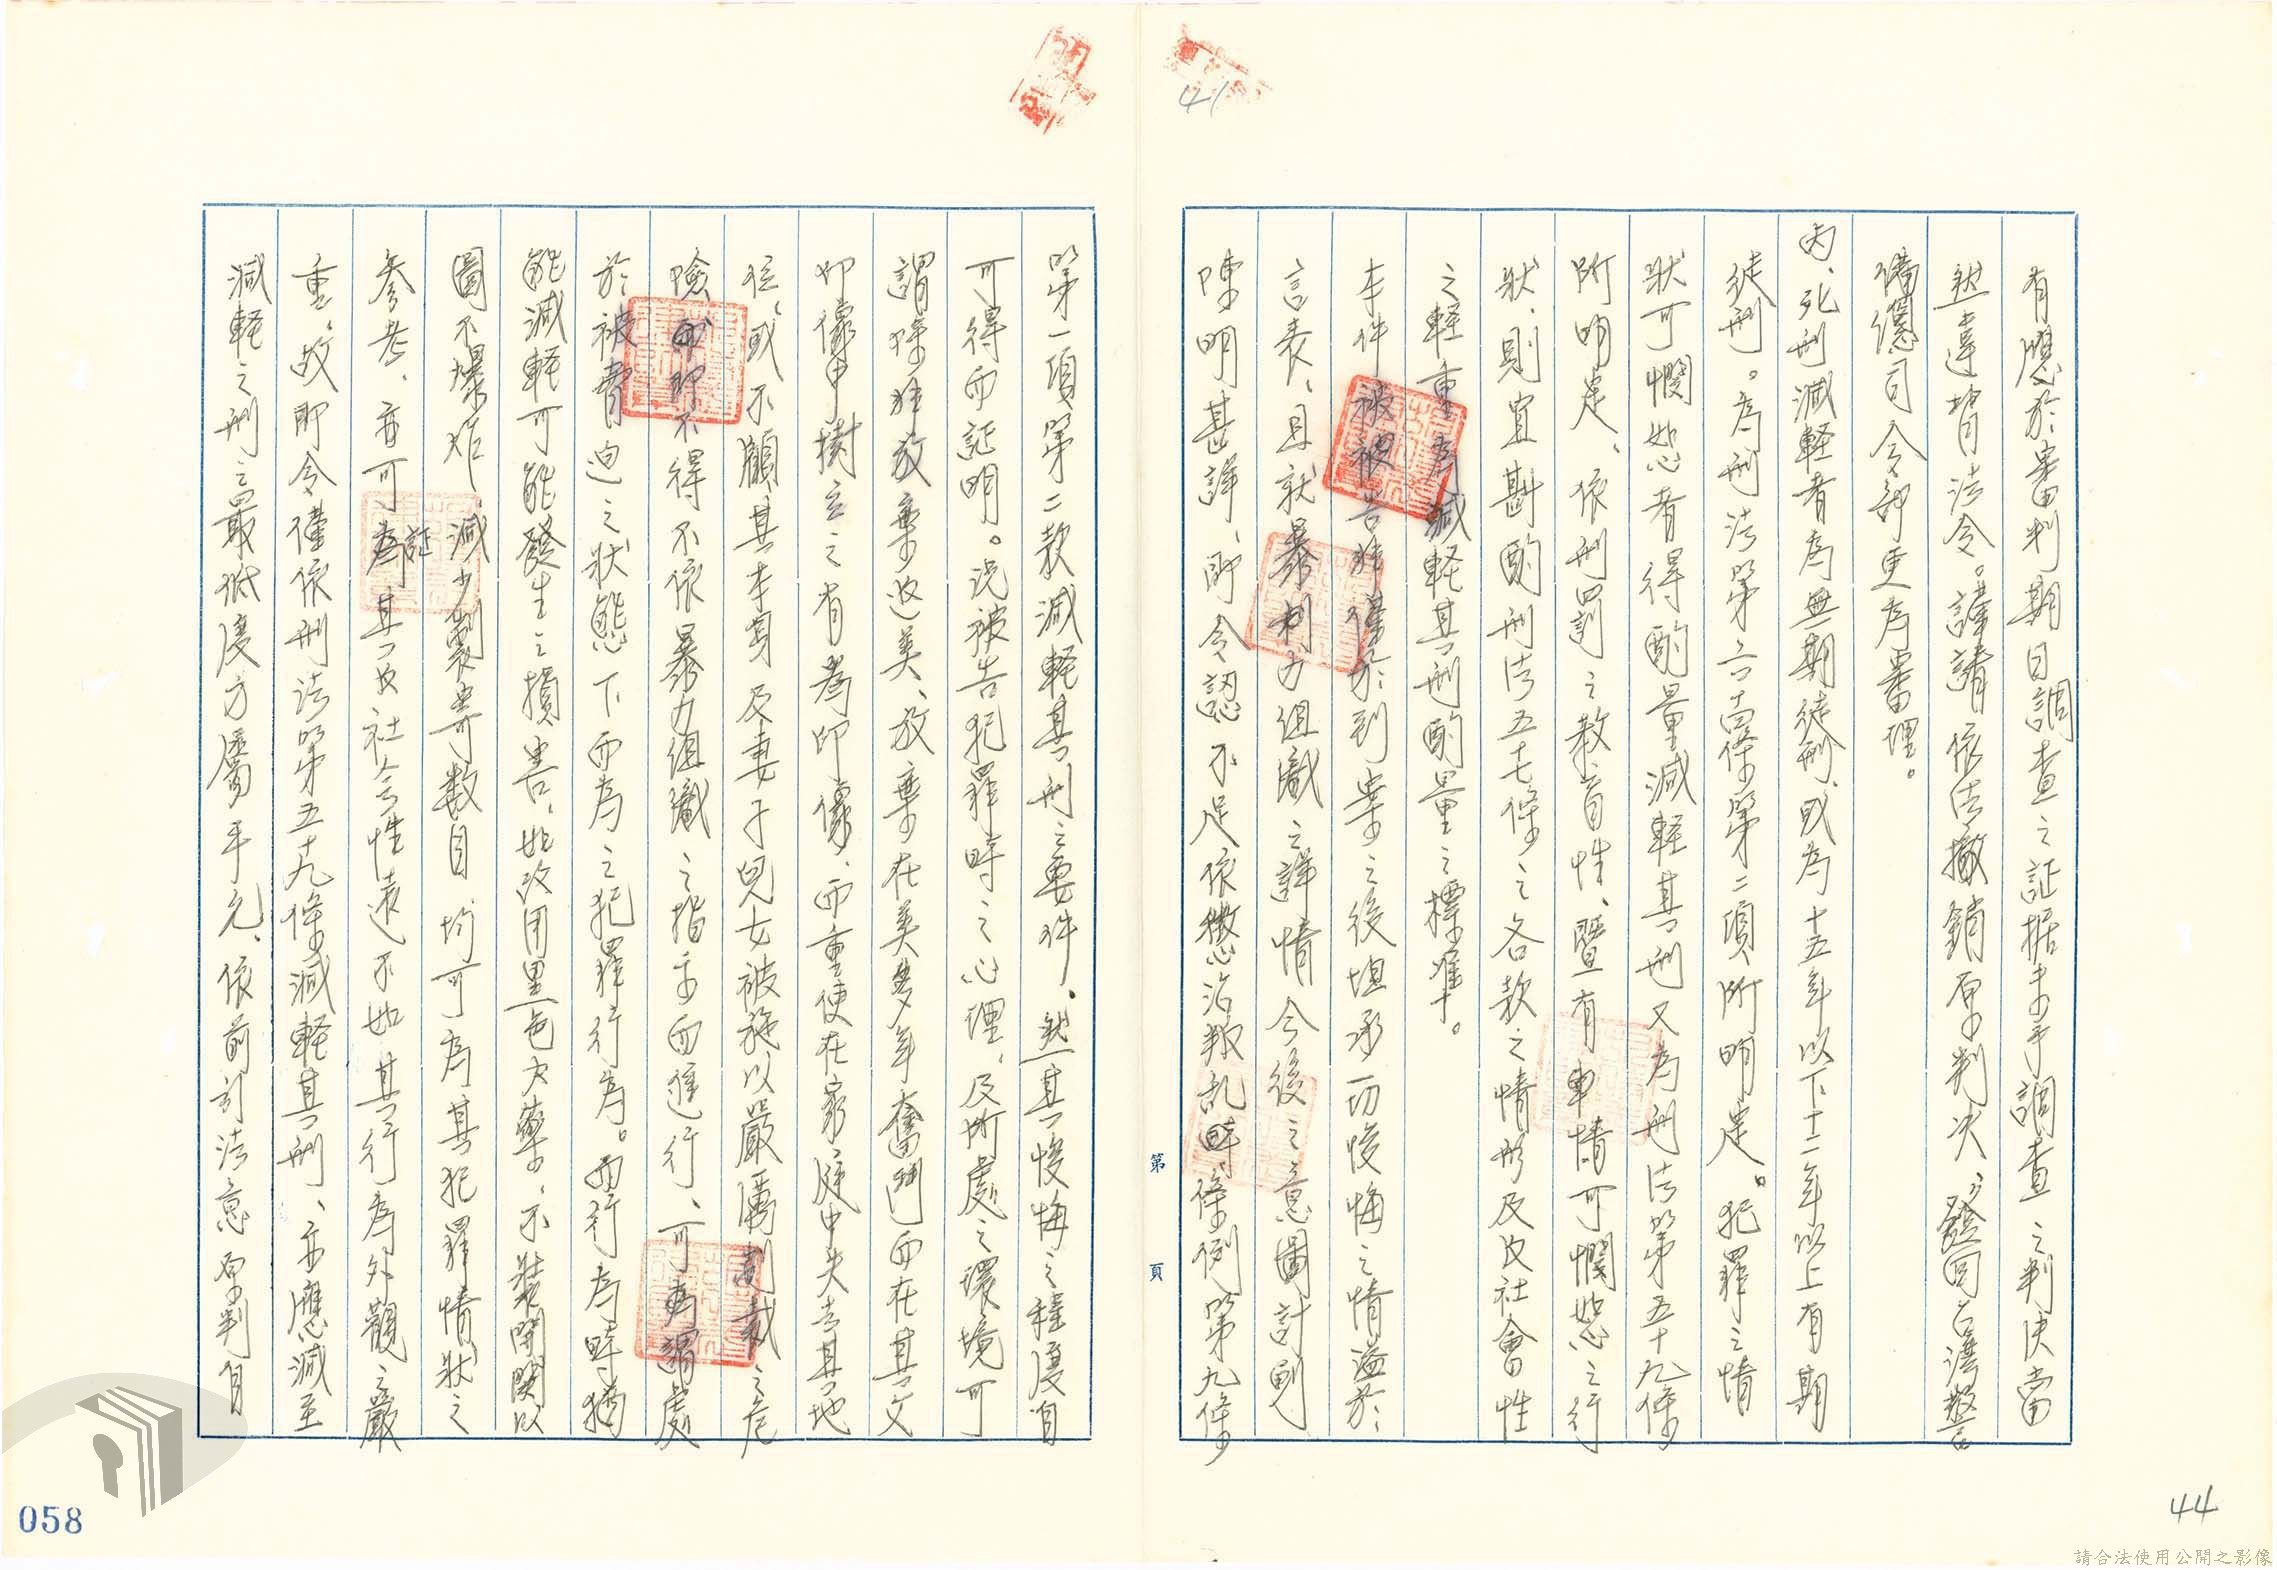 41
有應於審判期日調查之証據未予調查之判決當
然違背法令。謹請依法撤銷原判決、發回台灣警
備總司令部更為審理。
丙、死刑減軽者為無期徒刑、或為十五年以下十二年以上有期
徒刑。為刑法第六十四條第二項所明定。犯罪之情
狀可憫恕者得酌量減軽其刑又為刑法第五十九條
所明定、依刑罰之教育性、暨有事情可憫恕之行
狀、則宜斟酌刑法五七條之各款之情形及反社會性
之軽重為減軽其刑酌量之標準。
本件被告於到案之後坦承一切悛悔之情溢於
言表、且就暴力組織之詳情今後之意圖計劃
陳明甚詳、即令認不足依懲治叛乱條例第九條
第 頁
第一項第二款減軽其刑之要件、然其悛悔之程度自
可得而証明。況被告犯罪時之心理、及所處之環境可
謂除放棄返美、放棄在美多年奮鬥而在其父
印像中樹立之有為印像、而重使在家庭中失去其地
位、或不顧其本身及妻子兒女被施以嚴厲制裁之危
險、即不得不依暴力組織之指示而進行、可謂處
於被脅迫之狀態下而為之犯罪行為。而行為時猶
能減軽可能發生之損害、如改用黑色火藥、不裝開關以
圖不爆炸、減少製寄數目均可為其犯罪情狀之
參考、亦可証其反社会性遠不如其行為外觀之嚴
重、故即令僅依刑法第五十九條減軽其刑、亦應減至
減軽之刑之最低度方屬平允、依前引法意原判自
058
44
請合法使用公開之影像